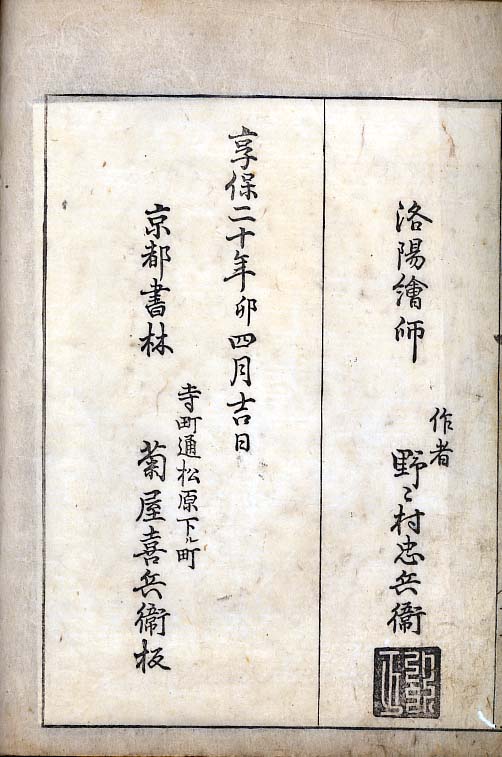 洛陽繪師
作者
野〻村忠兵衞
享保二十年卯四月吉日
京都書林
寺町通松原下ル町
菊屋喜兵衞板